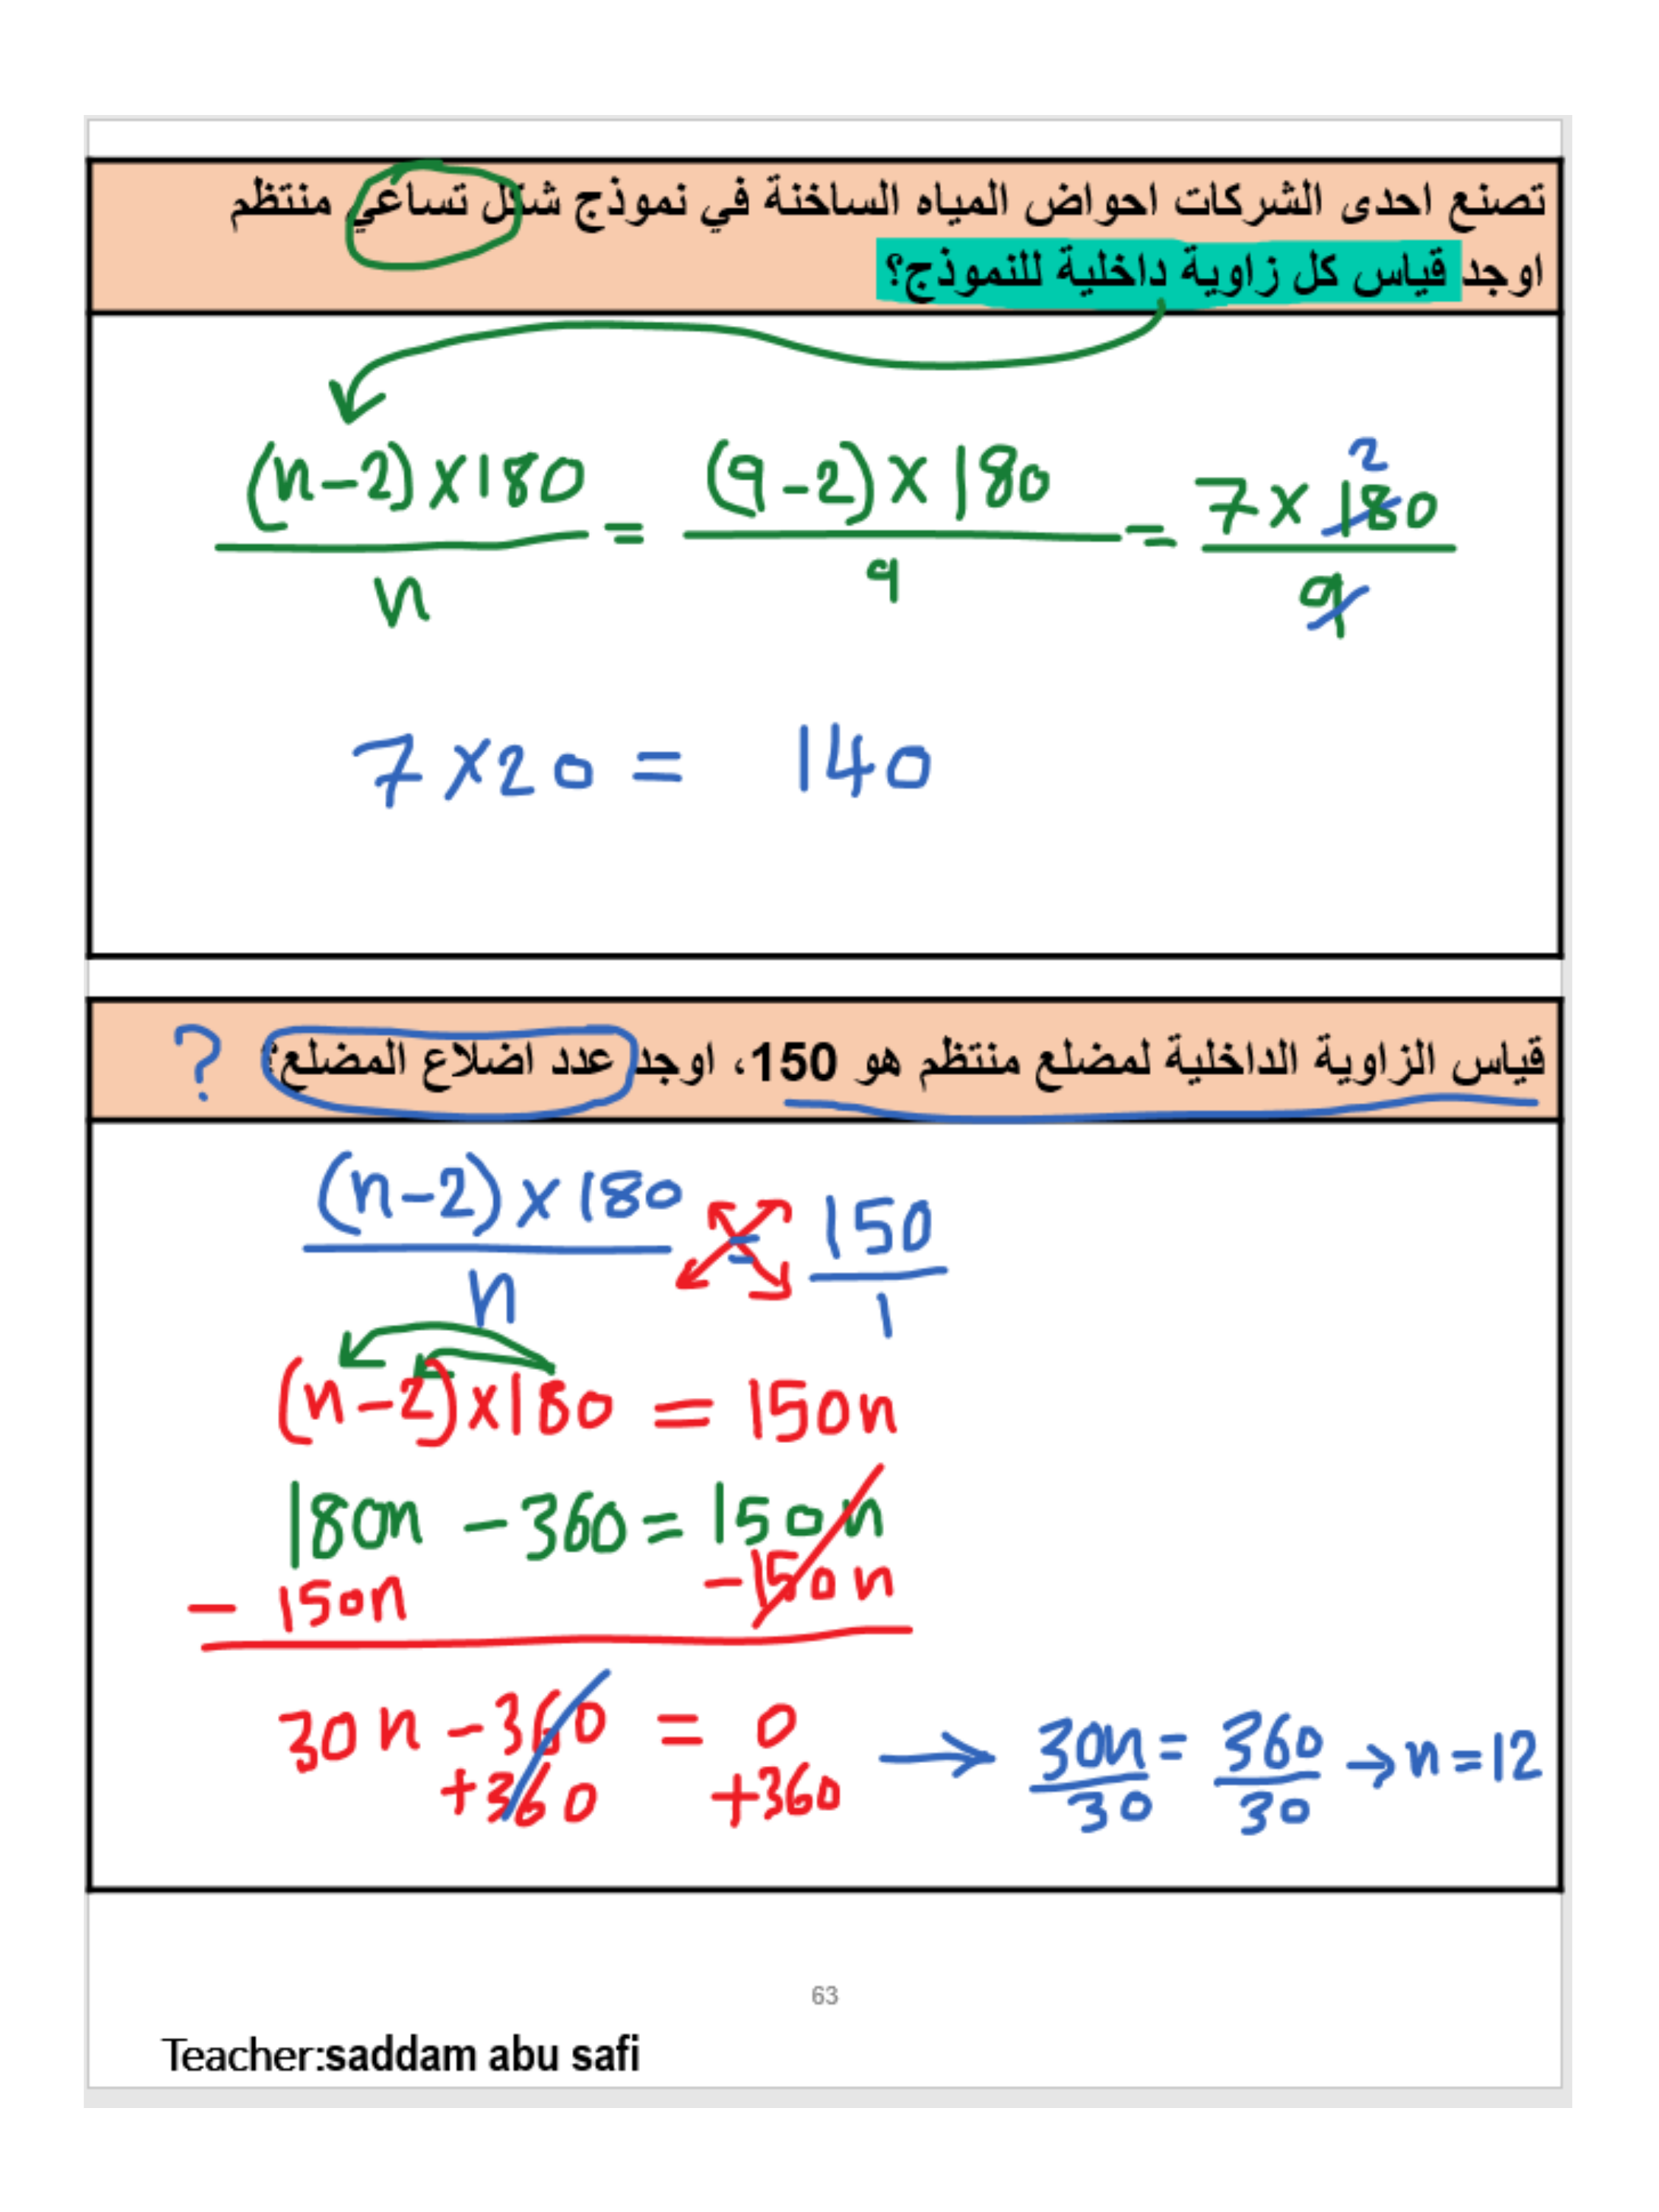 تصنع احدى الشركات احواض المياه الساخنة في نموذج شكل تساعي منتظم
اوجد قياس كل زاوية داخلية للنموذج؟
(n-2)×180 / n = (9-2)×180 / 9 = 7×180 / 9
2
7×20 = 140
قياس الزاوية الداخلية لمضلع منتظم هو 150، اوجد عدد اضلاع المضلع؟ ?
(n-2)×180 / n = 150 / 1
(n-2)×180 = 150n
180n - 360 = 150n
- 150n -150n
30n - 360 = 0 → 30n / 30 = 360 / 30 → n = 12
+360 +360
63
Teacher:saddam abu safi